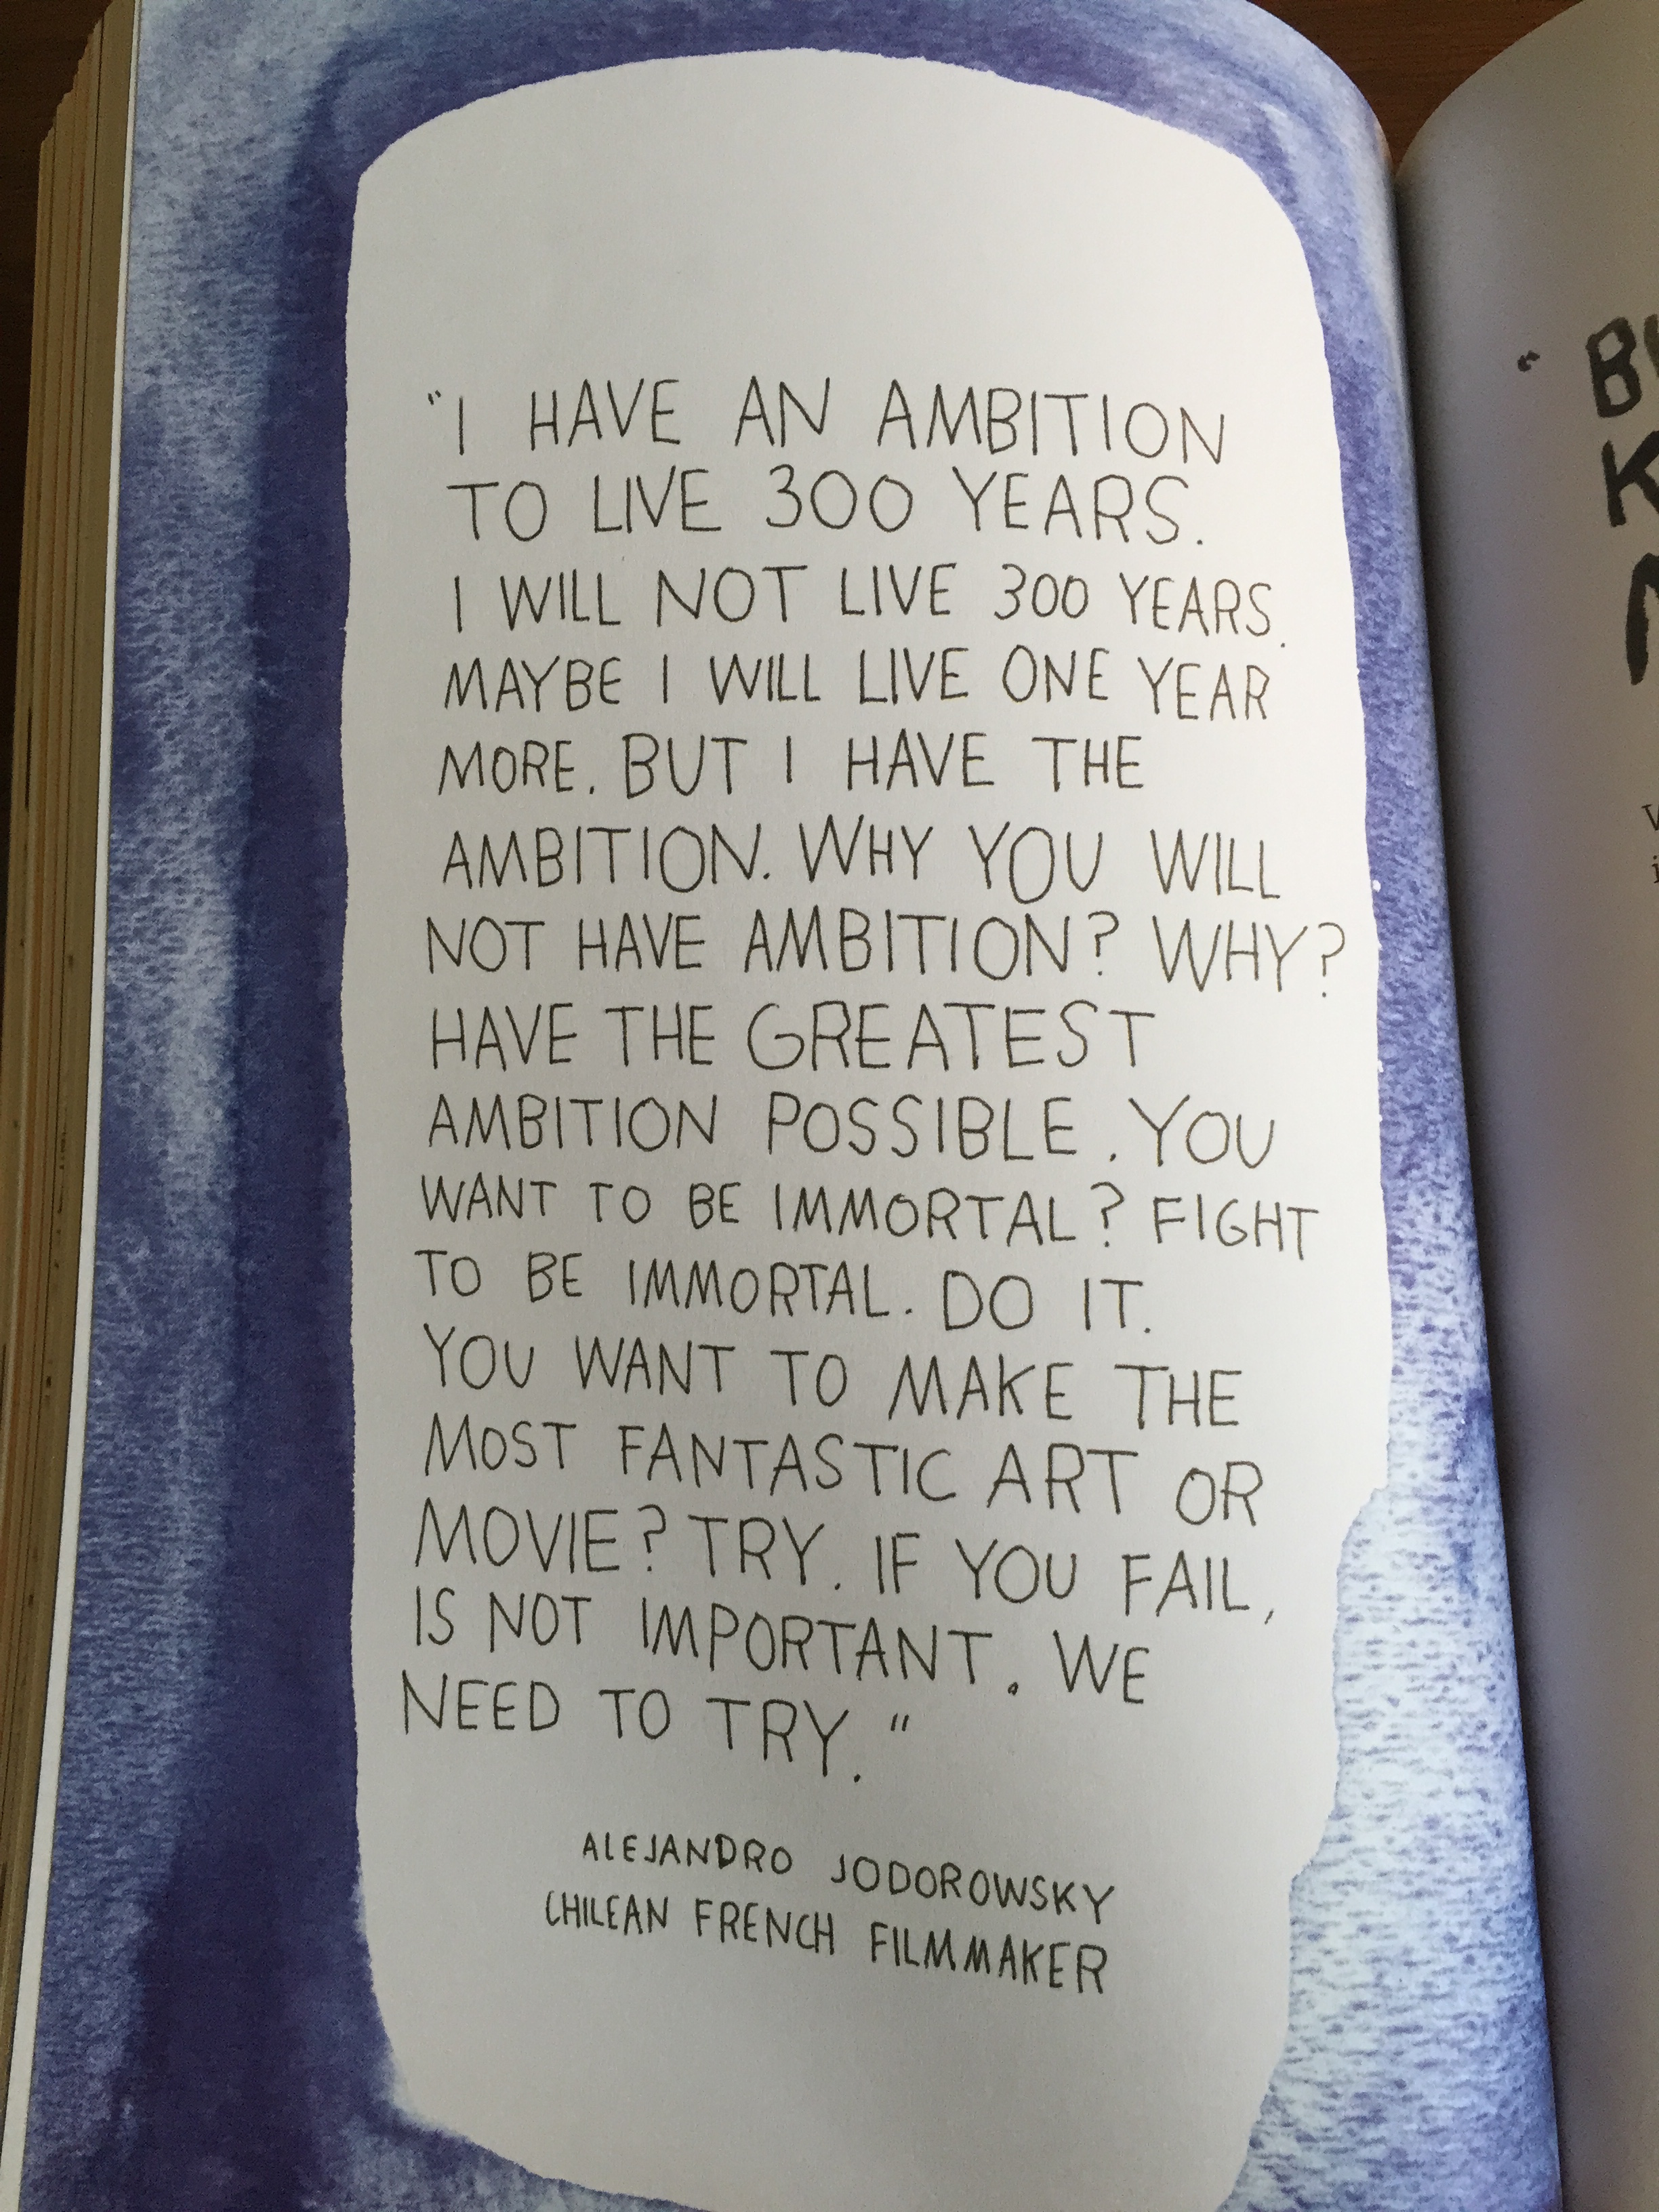 "I HAVE AN AMBITION
TO LIVE 300 YEARS.
I WILL NOT LIVE 300 YEARS.
MAYBE I WILL LIVE ONE YEAR
MORE. BUT I HAVE THE
AMBITION. WHY YOU WILL
NOT HAVE AMBITION? WHY?
HAVE THE GREATEST
AMBITION POSSIBLE. YOU
WANT TO BE IMMORTAL? FIGHT
TO BE IMMORTAL. DO IT.
YOU WANT TO MAKE THE
MOST FANTASTIC ART OR
MOVIE? TRY. IF YOU FAIL,
IS NOT IMPORTANT. WE
NEED TO TRY."
ALEJANDRO JODOROWSKY
CHILEAN FRENCH FILMMAKER